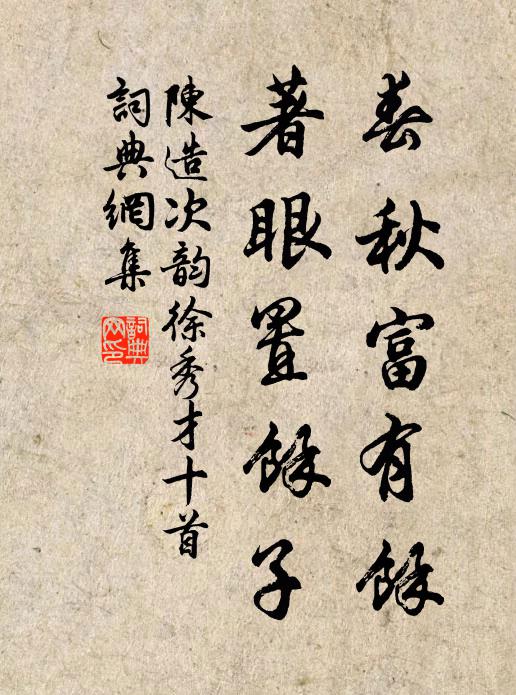 春秋富有餘
著眼置餘子
陳造次韵徐秀才十首
詞典網集
詞典
网印